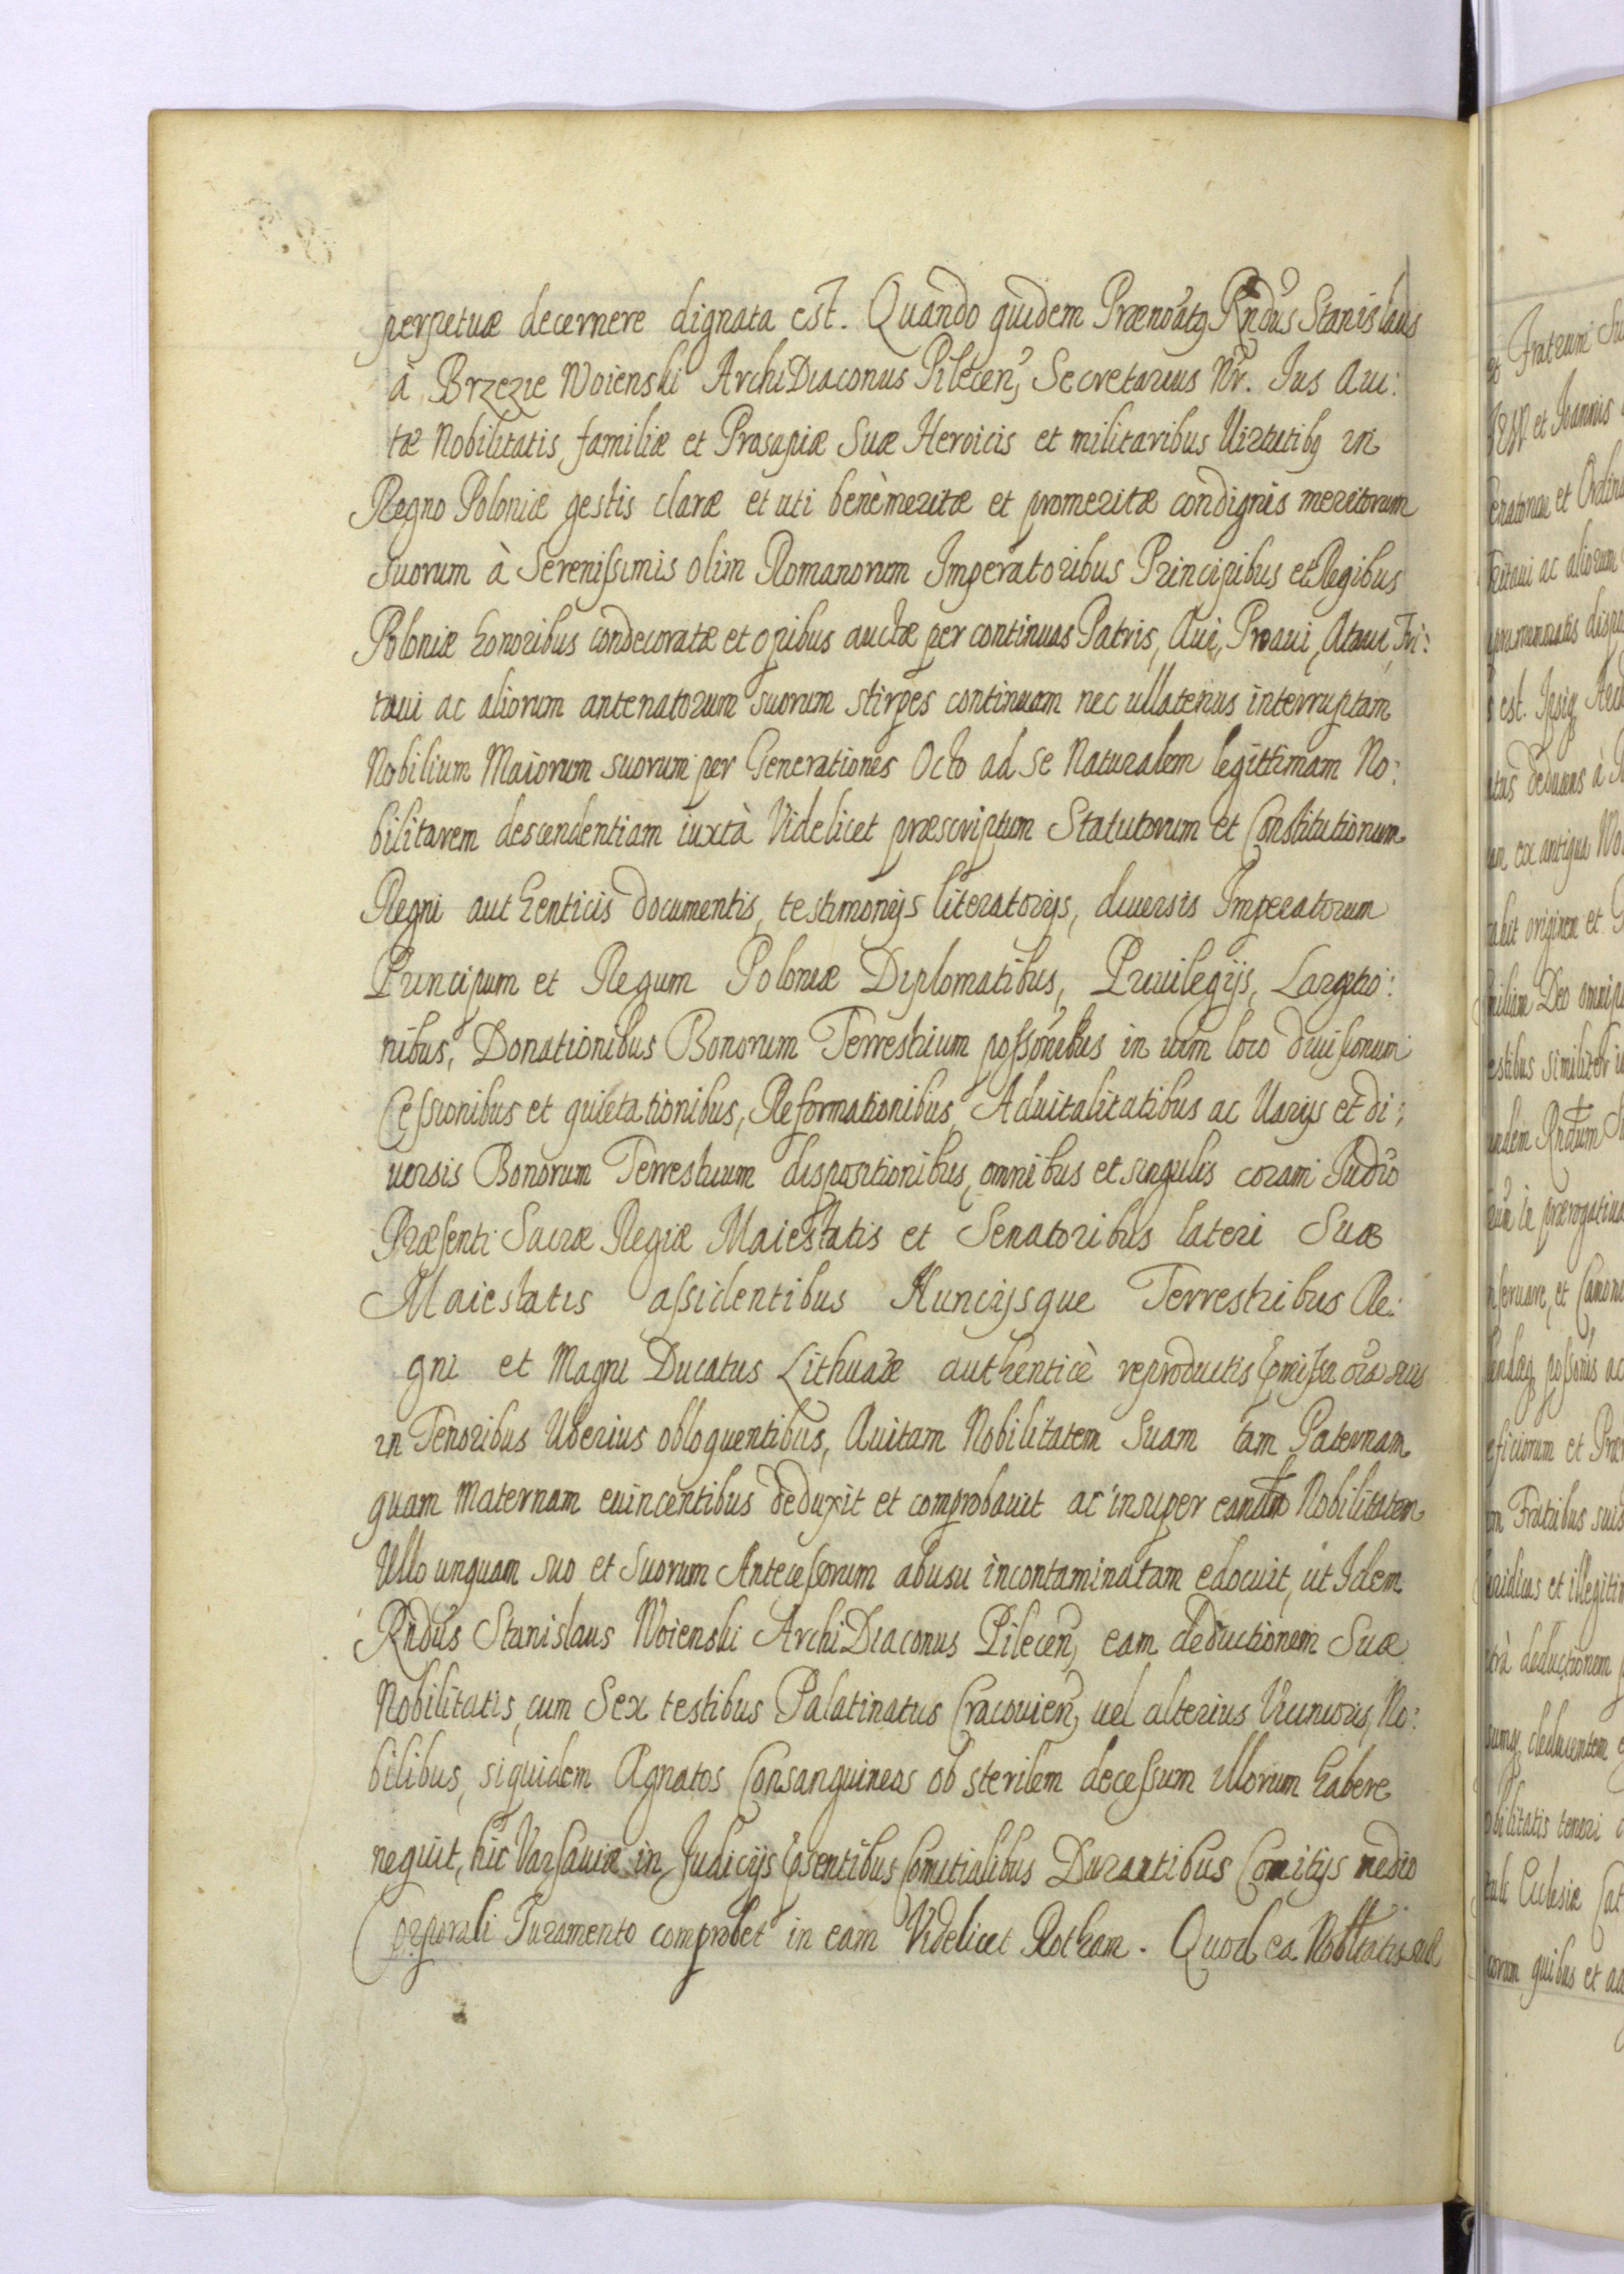 perpetuæ decernere dignata est. Quando quidem Prænoãtꝫ Rñdus Stanislaus
à Brzezie Woienski ArchiDiaconus Pilecen̄, Secretarius Nr̃. Ius Aui:
tæ Nobilitatis, familiæ et Prosapiæ Suæ Heroicis et militaribus Uirtutibꝫ in
Regno Poloniæ gestis claræ et uti benèmeritæ et promeritæ condignis meritorum
suorum à Serenissimis olim Romanorum Imperatoribus Principibus et Regibus
Poloniæ honoribus condecoratæ et opibus auctæ per continuas Patris, Aui, Proaui, Ataui, Tri:
taui ac aliorum antenatorum suorum stirpes continuam nec ullatenus interruptam
Nobilium Maiorum suorum per Generationes Octo ad se Naturalem legittimam No:
bilitarem descendentiam iuxtà Videlicet præscriptum Statutorum et Constitutionum
Regni authenticis documentis, testimonijs literatorijs, diuersis Imperatorum
Principum et Regum Poloniæ Diplomatibus, Priuilegijs, Largitio:
nibus, Donationibus Bonorum Terrestrium possõnibus in uim loco diuisionum
Cessionibus et quietationibus, Reformationibus, Aduitalitatibus ac Uarijs et di:
uersis Bonorum Terrestrium dispositionibus, omnibus et singulis coram Iudio
Præsenti Sacræ Regiæ Maiestatis et Senatoribus lateri Suæ
Maiestatis assidentibus Nuncijsque Terrestribus Re:
gni et Magni Ducatus Lithuãæ authenticè reproductis
in Tenoribus Uberius obloquentibus, Auitam Nobilitatem Suam tam Paternam
quam Maternam euincentibus deduxit et comprobauit ac insuper Nobilitatem
Ullo unquam suo et Suorum Antecessorum abusu incontaminatam edocuit, ut Idem
Rñdus Stanislaus Woienski ArchiDiaconus Pilecen̄, eam deductionem Suæ
Nobilitatis, cum Sex testibus Palatinatus Cracouien̄, uel alterius Uicinioris, No:
bilibus, siquidem Agnatos Consanguineos ob sterilem decessum illorum habere
nequit, hic Varsauiæ in Judicijs Comitialibus Durantibus Comitijs medio
Corporali Iuramento comprobet in eam Videlicet Rotham. Quod ea